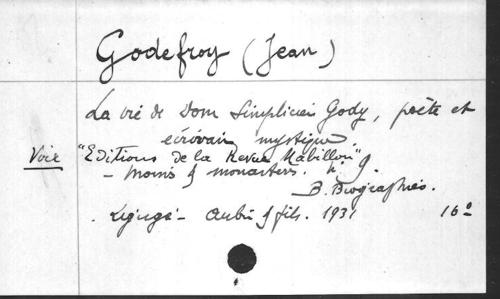 Godefroy (Jean)
La vie de Dom Simplicien Gody, poète et
écrivain mystique.
Voir "Editions de la Revue Mabillon"
- Moines & monastères. n° 9.
B. Biographies.
Ligugé - Aubin & fils. 1931 16°